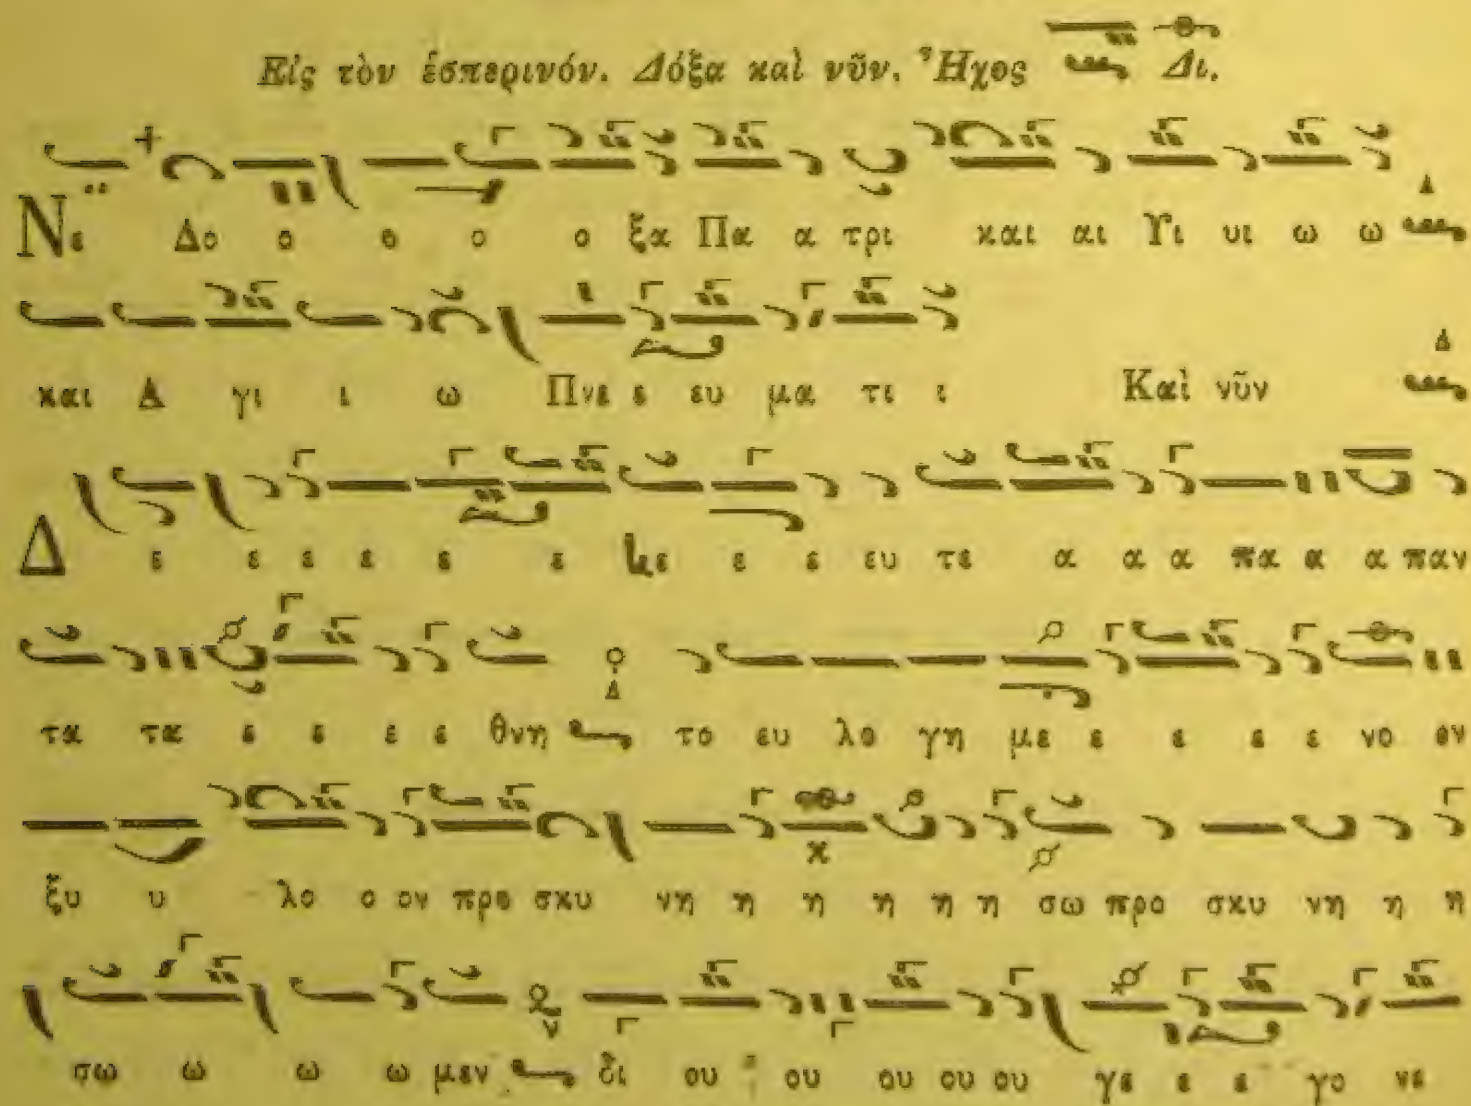 Εἰς τὸν ἑσπερινόν. Δόξα καὶ νῦν. Ἦχος Δι.
Νε Δο ο ο ο ο ξα Πα α τρι και αι Υι υι ω ω Δ
και Α γι ι ω Πνε ε ευ μα τι ι Καὶ νῦν Δ
Δ ε ε ε ε ε ε ε ε ευ τε α α α πα α α παν
τα τα ε ε ε ε θνη Δ το ευ λο γη με ε ε ε ε νο ον
ξυ υ λο ο ον προ σκυ νη η η η η η σω προ σκυ νη η η
σω ω ω ω μεν δι ου ου ου ου ου γε ε ε γο νε